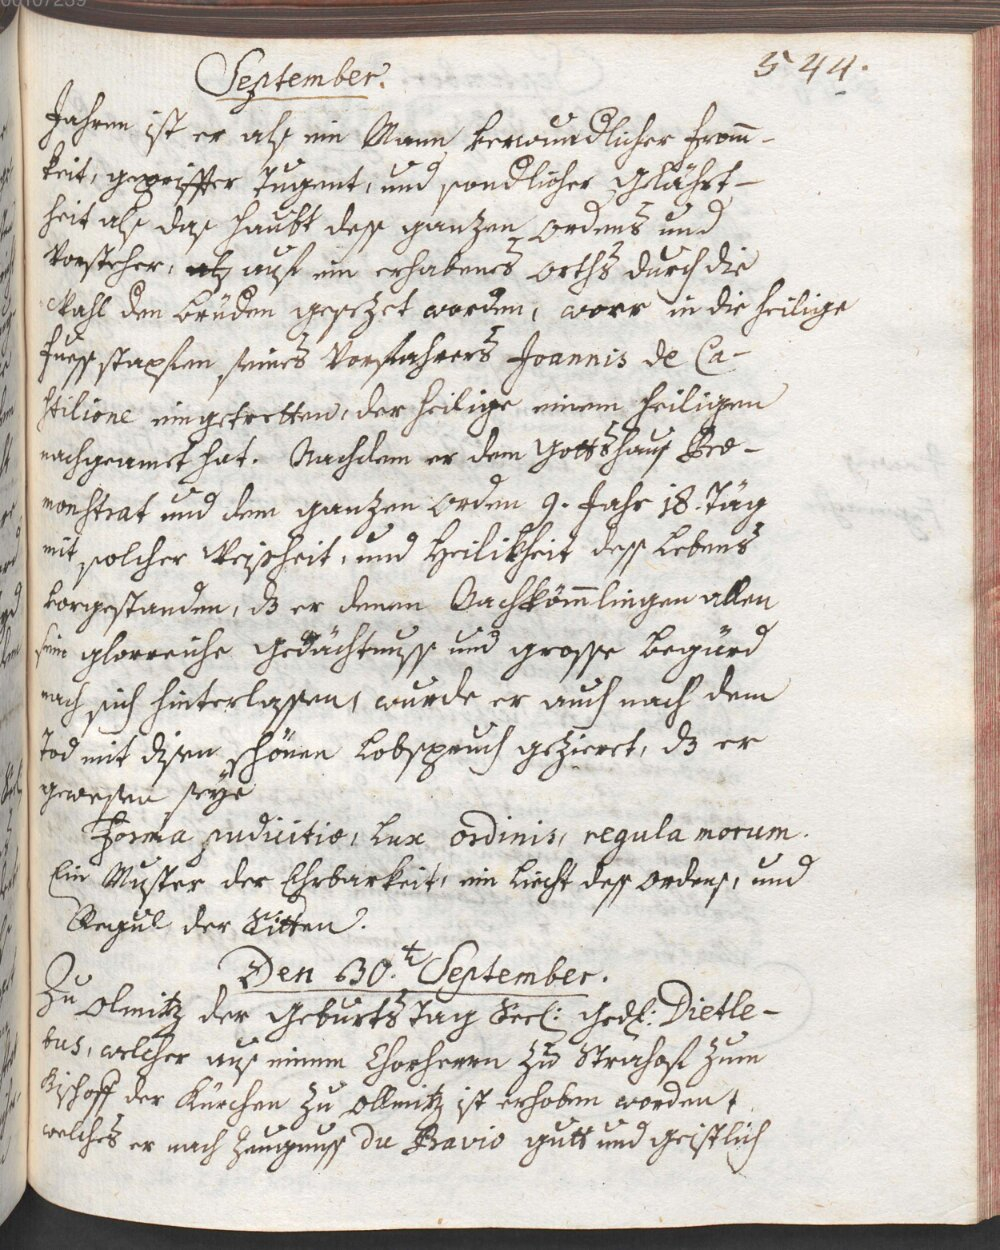 00107239
September. 544.
Jahren ist er alß ein Mann verwundlicher from̄-
keit, geprüffter Tugent, und sondlicher gelährt-
heit alß daß haubt dess ganzen Ordens und
Vorsteher, auß ein erhabenes orths durch die
Wahl den brüden gesezet worden, worr in die heilige
fuess stapfen seines Vorfahrers Joannis de Ca-
stilione eingetretten, der heilige einem heiligen
nachgeamet hat. Nachdem er dem Gottshauß Præ-
monstrat und dem ganzen orden 9. Jahr 18. Täg
mit solcher Weißheit, und Heilikheit dess Lebens
vorgestanden, dz er denen Nachköm̄lingen allen
sein glorreiche gedächtnuss und grosse begürd
nach sich hinterlassen, wurde er auch nach dem
Tod mit disen schönen Lobspruch gezieret, dz er
gewesen seye
Forma pudicitiæ, Lux ordinis, regula morum.
Ein Muster der Ehrbarkeit, ein Liecht dess ordens, und
Regul der Sitten.
Den 30.t September.
Zu Olmitz der geburts Tag Seel: ged: Dietle-
bus, welcher auß einem Chorherrn zu Strahoff zum
Bischoff der Kürchen zu Ollmitz ist erhoben worden,
welches er nach Zeugnuss du Pavio gutt und geistlich